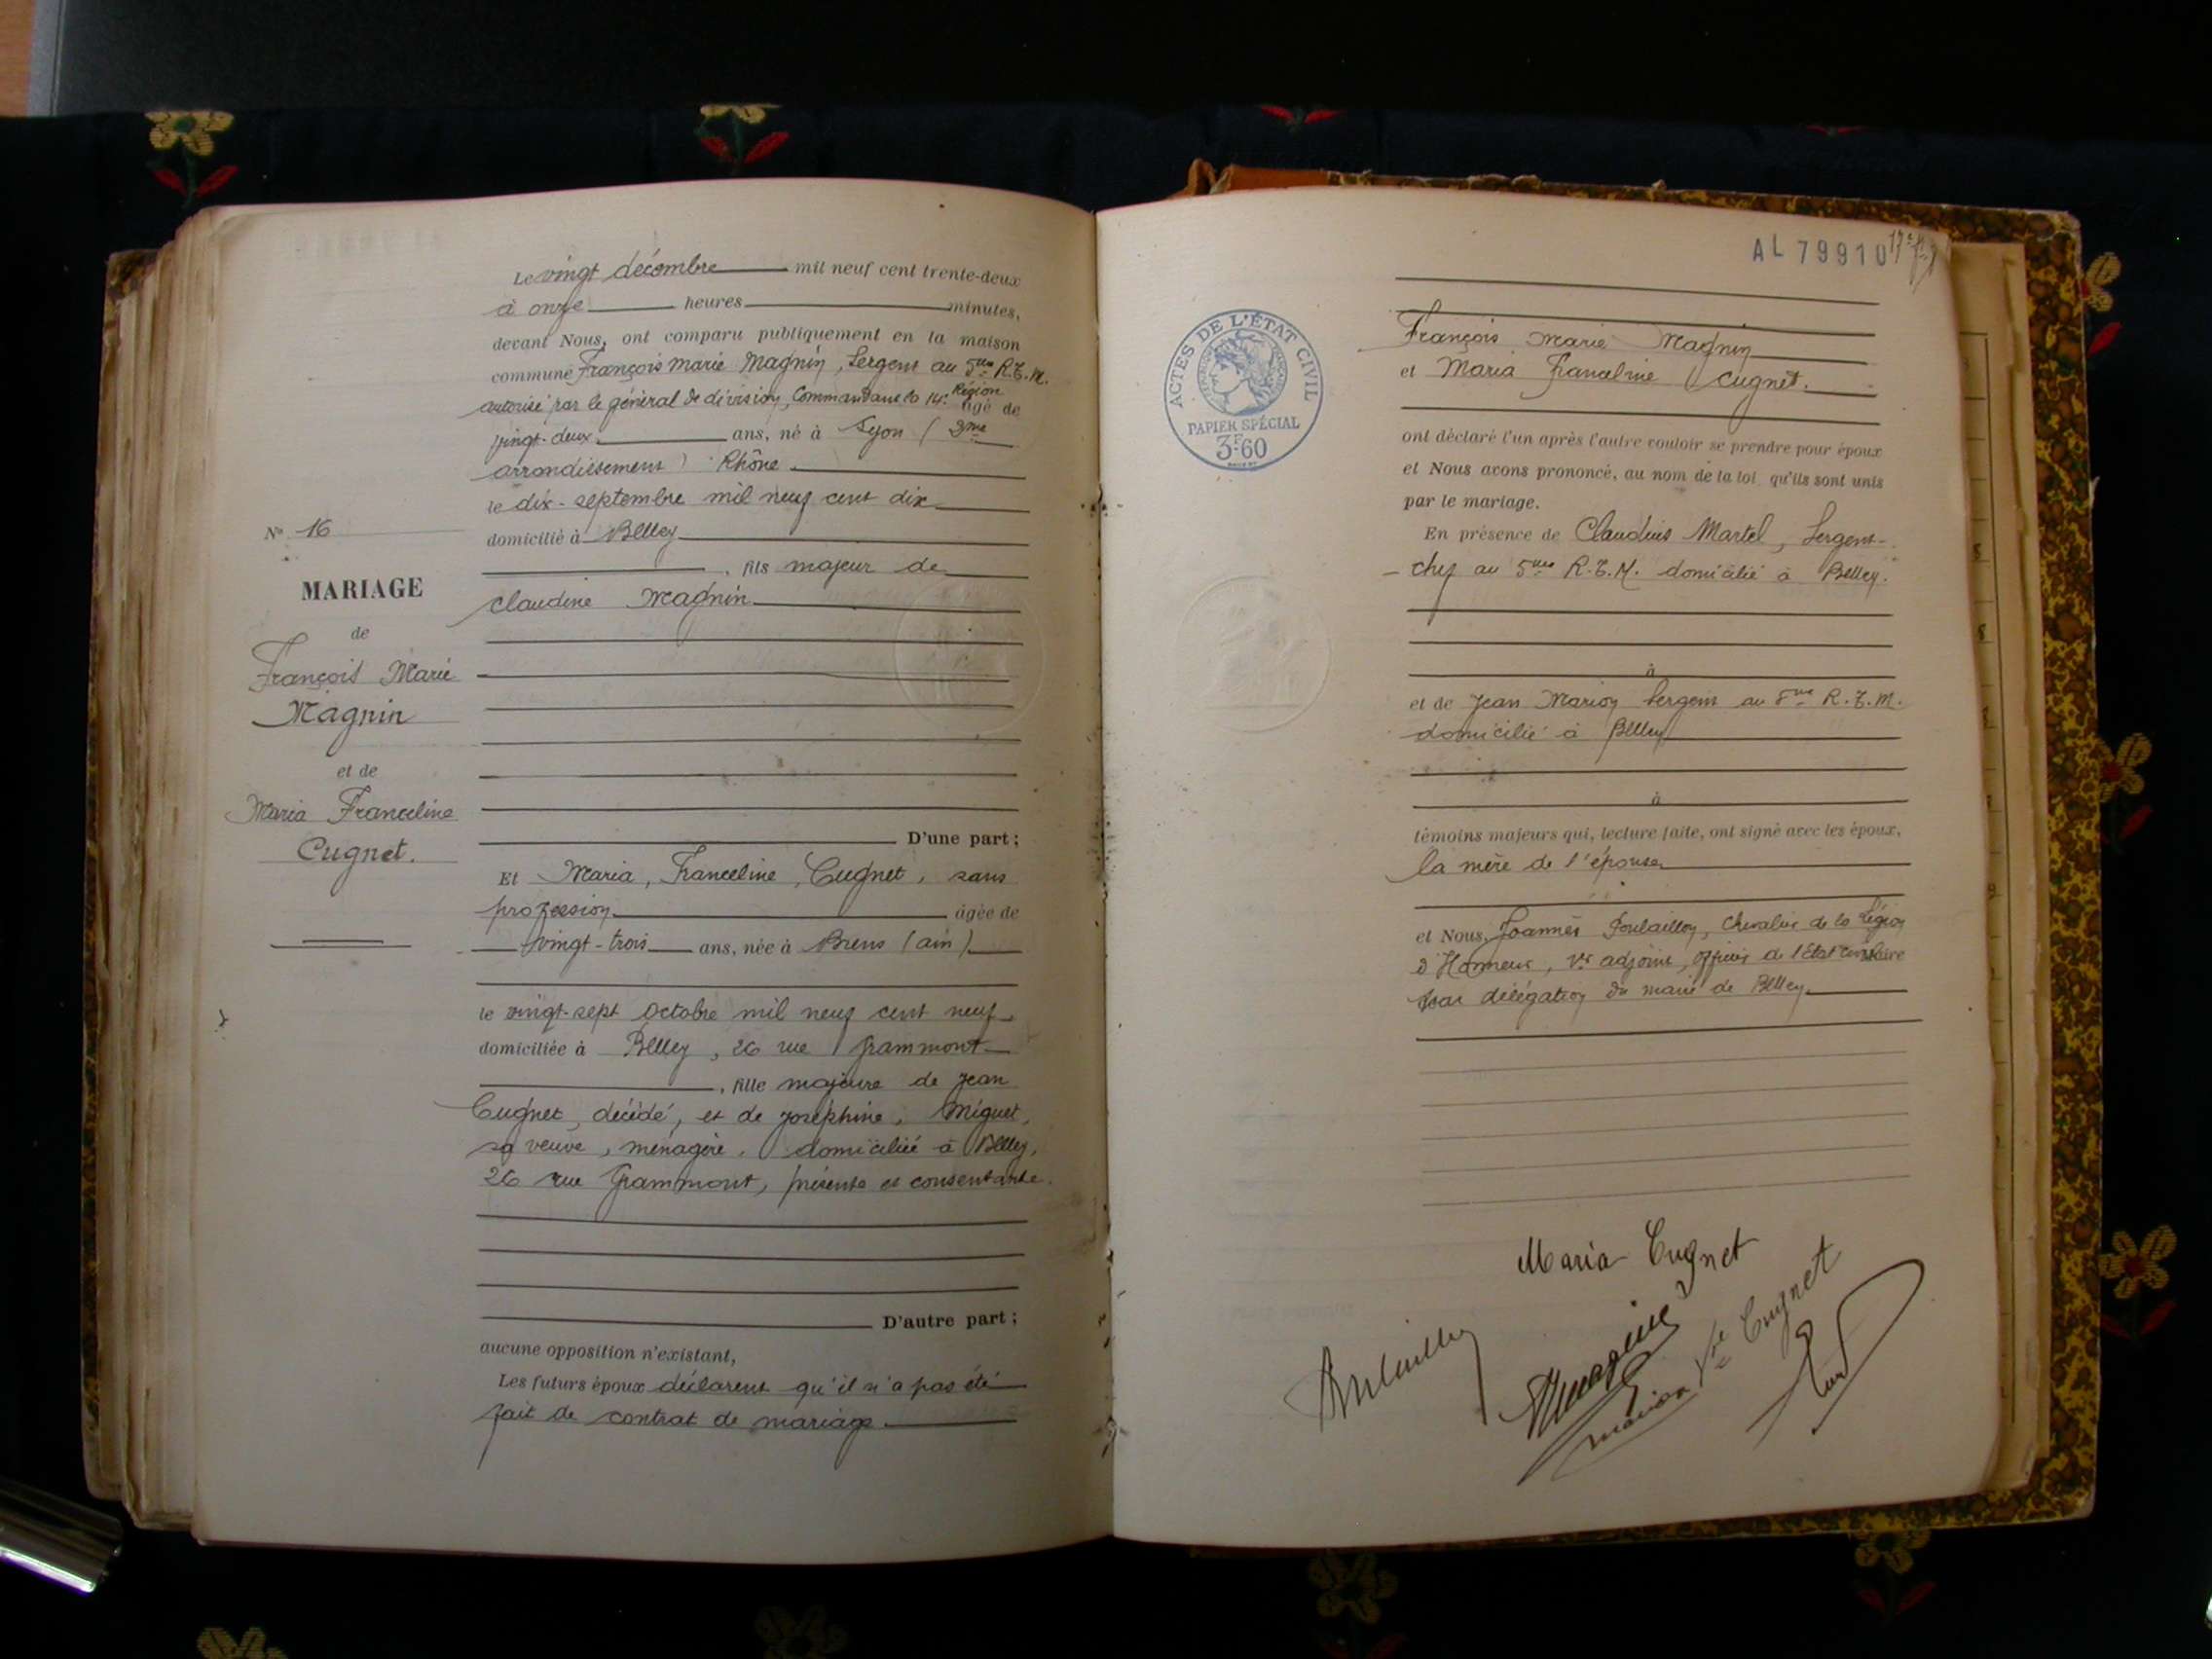 Le vingt décembre mil neuf cent trente-deux
à onze heures minutes,
devant Nous, ont comparu publiquement en la maison
commune François Marie Magnin, Sergent au 5me R.T.M.
autorisé par le général de division, Commandant la 14e Région
âgé de
vingt-deux ans, né à Lyon (3me
arrondissement) Rhône
le dix-septembre mil neuf cent dix
domicilié à Belley
, fils majeur de
Claudine Magnin
D'une part ;
Et Maria, Franceline, Cugnet, sans
profession âgée de
vingt-trois ans, née à Brens (ain)
le vingt-sept octobre mil neuf cent neuf
domiciliée à Belley, 26 rue Grammont
, fille majeure de Jean
Cugnet, décédé, et de Joséphine, Miguet,
sa veuve, ménagère, domiciliée à Belley,
26 rue Grammont, présente et consentante.
D'autre part ;
aucune opposition n'existant,
Les futurs époux déclarent qu'il n'a pas été
fait de contrat de mariage.
No 16
MARIAGE
de
François Marie
Magnin
et de
Maria Franceline
Cugnet.
AL 79910
ACTES DE L'ÉTAT CIVIL
PAPIER SPÉCIAL
3F60
François Marie Magnin
et Maria Franceline Cugnet.
ont déclaré l'un après l'autre vouloir se prendre pour époux
et Nous avons prononcé, au nom de la loi qu'ils sont unis
par le mariage.
En présence de Claudius Martel, Sergent-
- chef au 5me R.T.M. domicilié à Belley.
à
et de Jean Marion Sergent au 5me R.T.M.
domicilié à Belley
à
témoins majeurs qui, lecture faite, ont signé avec les époux,
la mère de l'épouse
et Nous, Joannès Poulaillon, Chevalier de la Légion
d'Honneur, 1er adjoint, officier de l'Etat civil
par délégation du maire de Belley.
Maria Cugnet
Magnin
Vve Cugnet
Marion